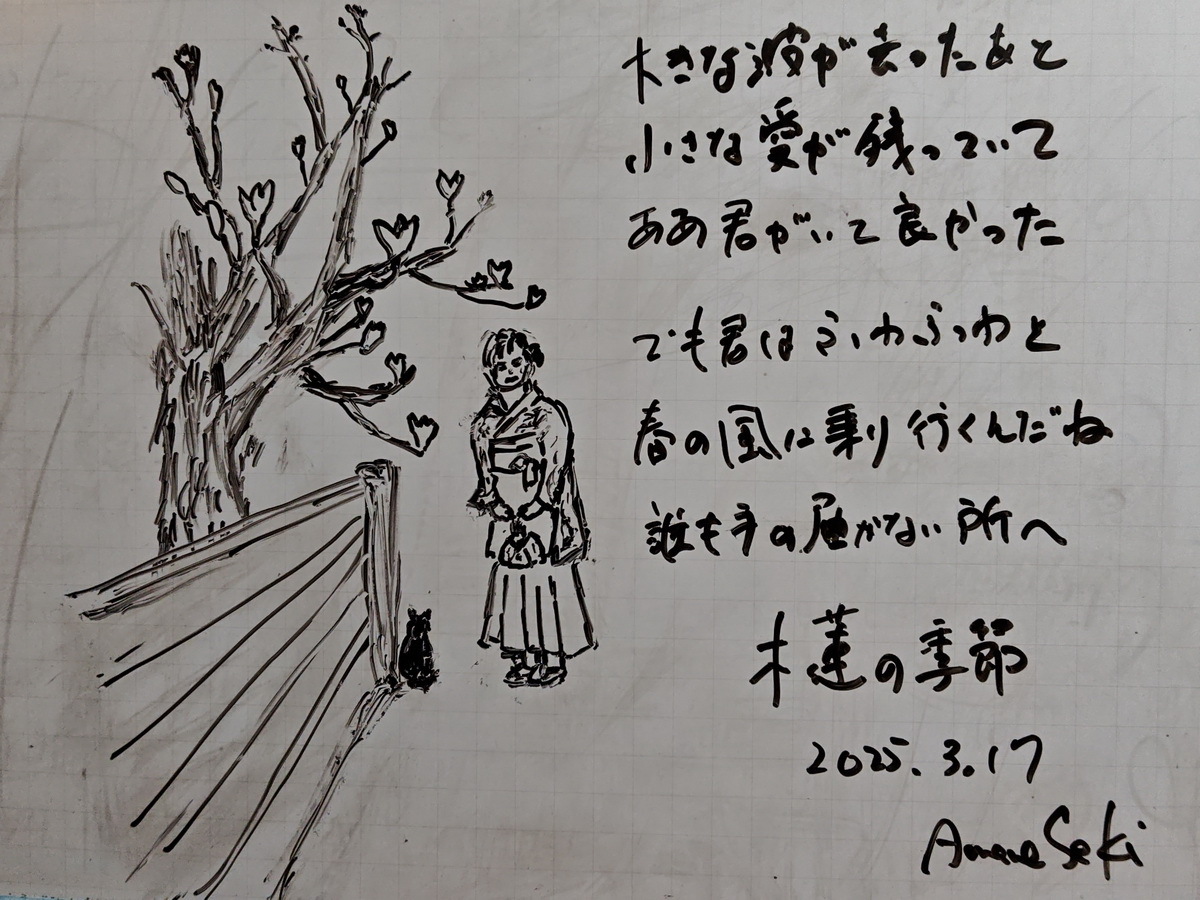 大きな波が去ったあと
小さな愛が残っていて
ああ君がいて良かった
でも君はふわふわと
春の風に乗り行くんだね
誰も手の届かない所へ
木蓮の季節
2025.3.17
Amane Seki